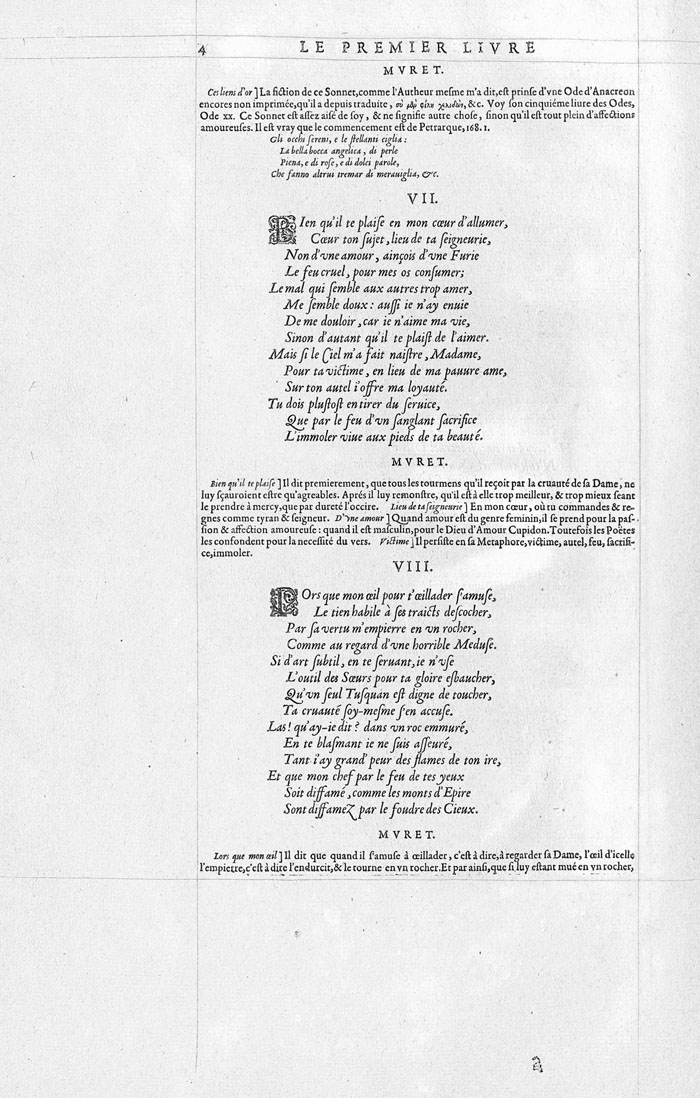 4 LE PREMIER LIVRE
MVRET.
Ces liens d'or ] La fiction de ce Sonnet, comme l'Autheur mesme m'a dit, est prinse d'vne Ode d'Anacreon
encores non imprimée, qu'il a depuis traduite, &c. Voy son cinquiéme liure des Odes,
Ode xx. Ce Sonnet est assez aisé de soy, & ne signifie autre chose, sinon qu'il est tout plein d'affections
amoureuses. Il est vray que le commencement est de Petrarque, 168. 1.
Gli occhi sereni, e le stellanti ciglia:
La bella bocca angelica, di perle
Piena, e di rose, e di dolci parole,
Che fanno altrui tremar di merauiglia, &c.
VII.
BIen qu'il te plaise en mon cœur d'allumer,
Cœur ton sujet, lieu de ta seigneurie,
Non d'vne amour, ainçois d'vne Furie
Le feu cruel, pour mes os consumer;
Le mal qui semble aux autres trop amer,
Me semble doux: aussi ie n'ay enuie
De me douloir, car ie n'aime ma vie,
Sinon d'autant qu'il te plaist de l'aimer.
Mais si le Ciel m'a fait naistre, Madame,
Pour ta victime, en lieu de ma pauure ame,
Sur ton autel i'offre ma loyauté.
Tu dois plustost en tirer du seruice,
Que par le feu d'vn sanglant sacrifice
L'immoler viue aux pieds de ta beauté.
MVRET.
Bien qu'il te plaise ] Il dit premierement, que tous les tourmens qu'il reçoit par la cruauté de sa Dame, ne
luy sçauroient estre qu'agreables. Aprés il luy remonstre, qu'il est à elle trop meilleur, & trop mieux seant
le prendre à mercy, que par dureté l'occire. Lieu de ta seigneurie ] En mon cœur, où tu commandes & re-
gnes comme tyran & seigneur. D'vne amour ] Quand amour est du genre feminin, il se prend pour la pas-
sion & affection amoureuse: quand il est masculin, pour le Dieu d'Amour Cupidon. Toutefois les Poëtes
les confondent pour la necessité du vers. Victime ] Il persiste en sa Metaphore, victime, autel, feu, sacrifi-
ce, immoler.
VIII.
LOrs que mon œil pour t'œillader s'amuse,
Le tien habile à ses traicts descocher,
Par sa vertu m'empierre en vn rocher,
Comme au regard d'vne horrible Meduse.
Si d'art subtil, en te seruant, ie n'vse
L'outil des Sœurs pour ta gloire esbaucher,
Qu'vn seul Tusquan est digne de toucher,
Ta cruauté soy-mesme s'en accuse.
Las! qu'ay-ie dit? dans vn roc emmuré,
En te blasmant ie ne suis asseuré,
Tant i'ay grand' peur des flames de ton ire,
Et que mon chef par le feu de tes yeux
Soit diffamé, comme les monts d'Epire
Sont diffamez par le foudre des Cieux.
MVRET.
Lors que mon œil ] Il dit que quand il s'amuse à œillader, c'est à dire, à regarder sa Dame, l'œil d'icelle
l'empierre, c'est à dire l'endurcit, & le tourne en vn rocher. Et par ainsi, que si luy estant mué en vn rocher,